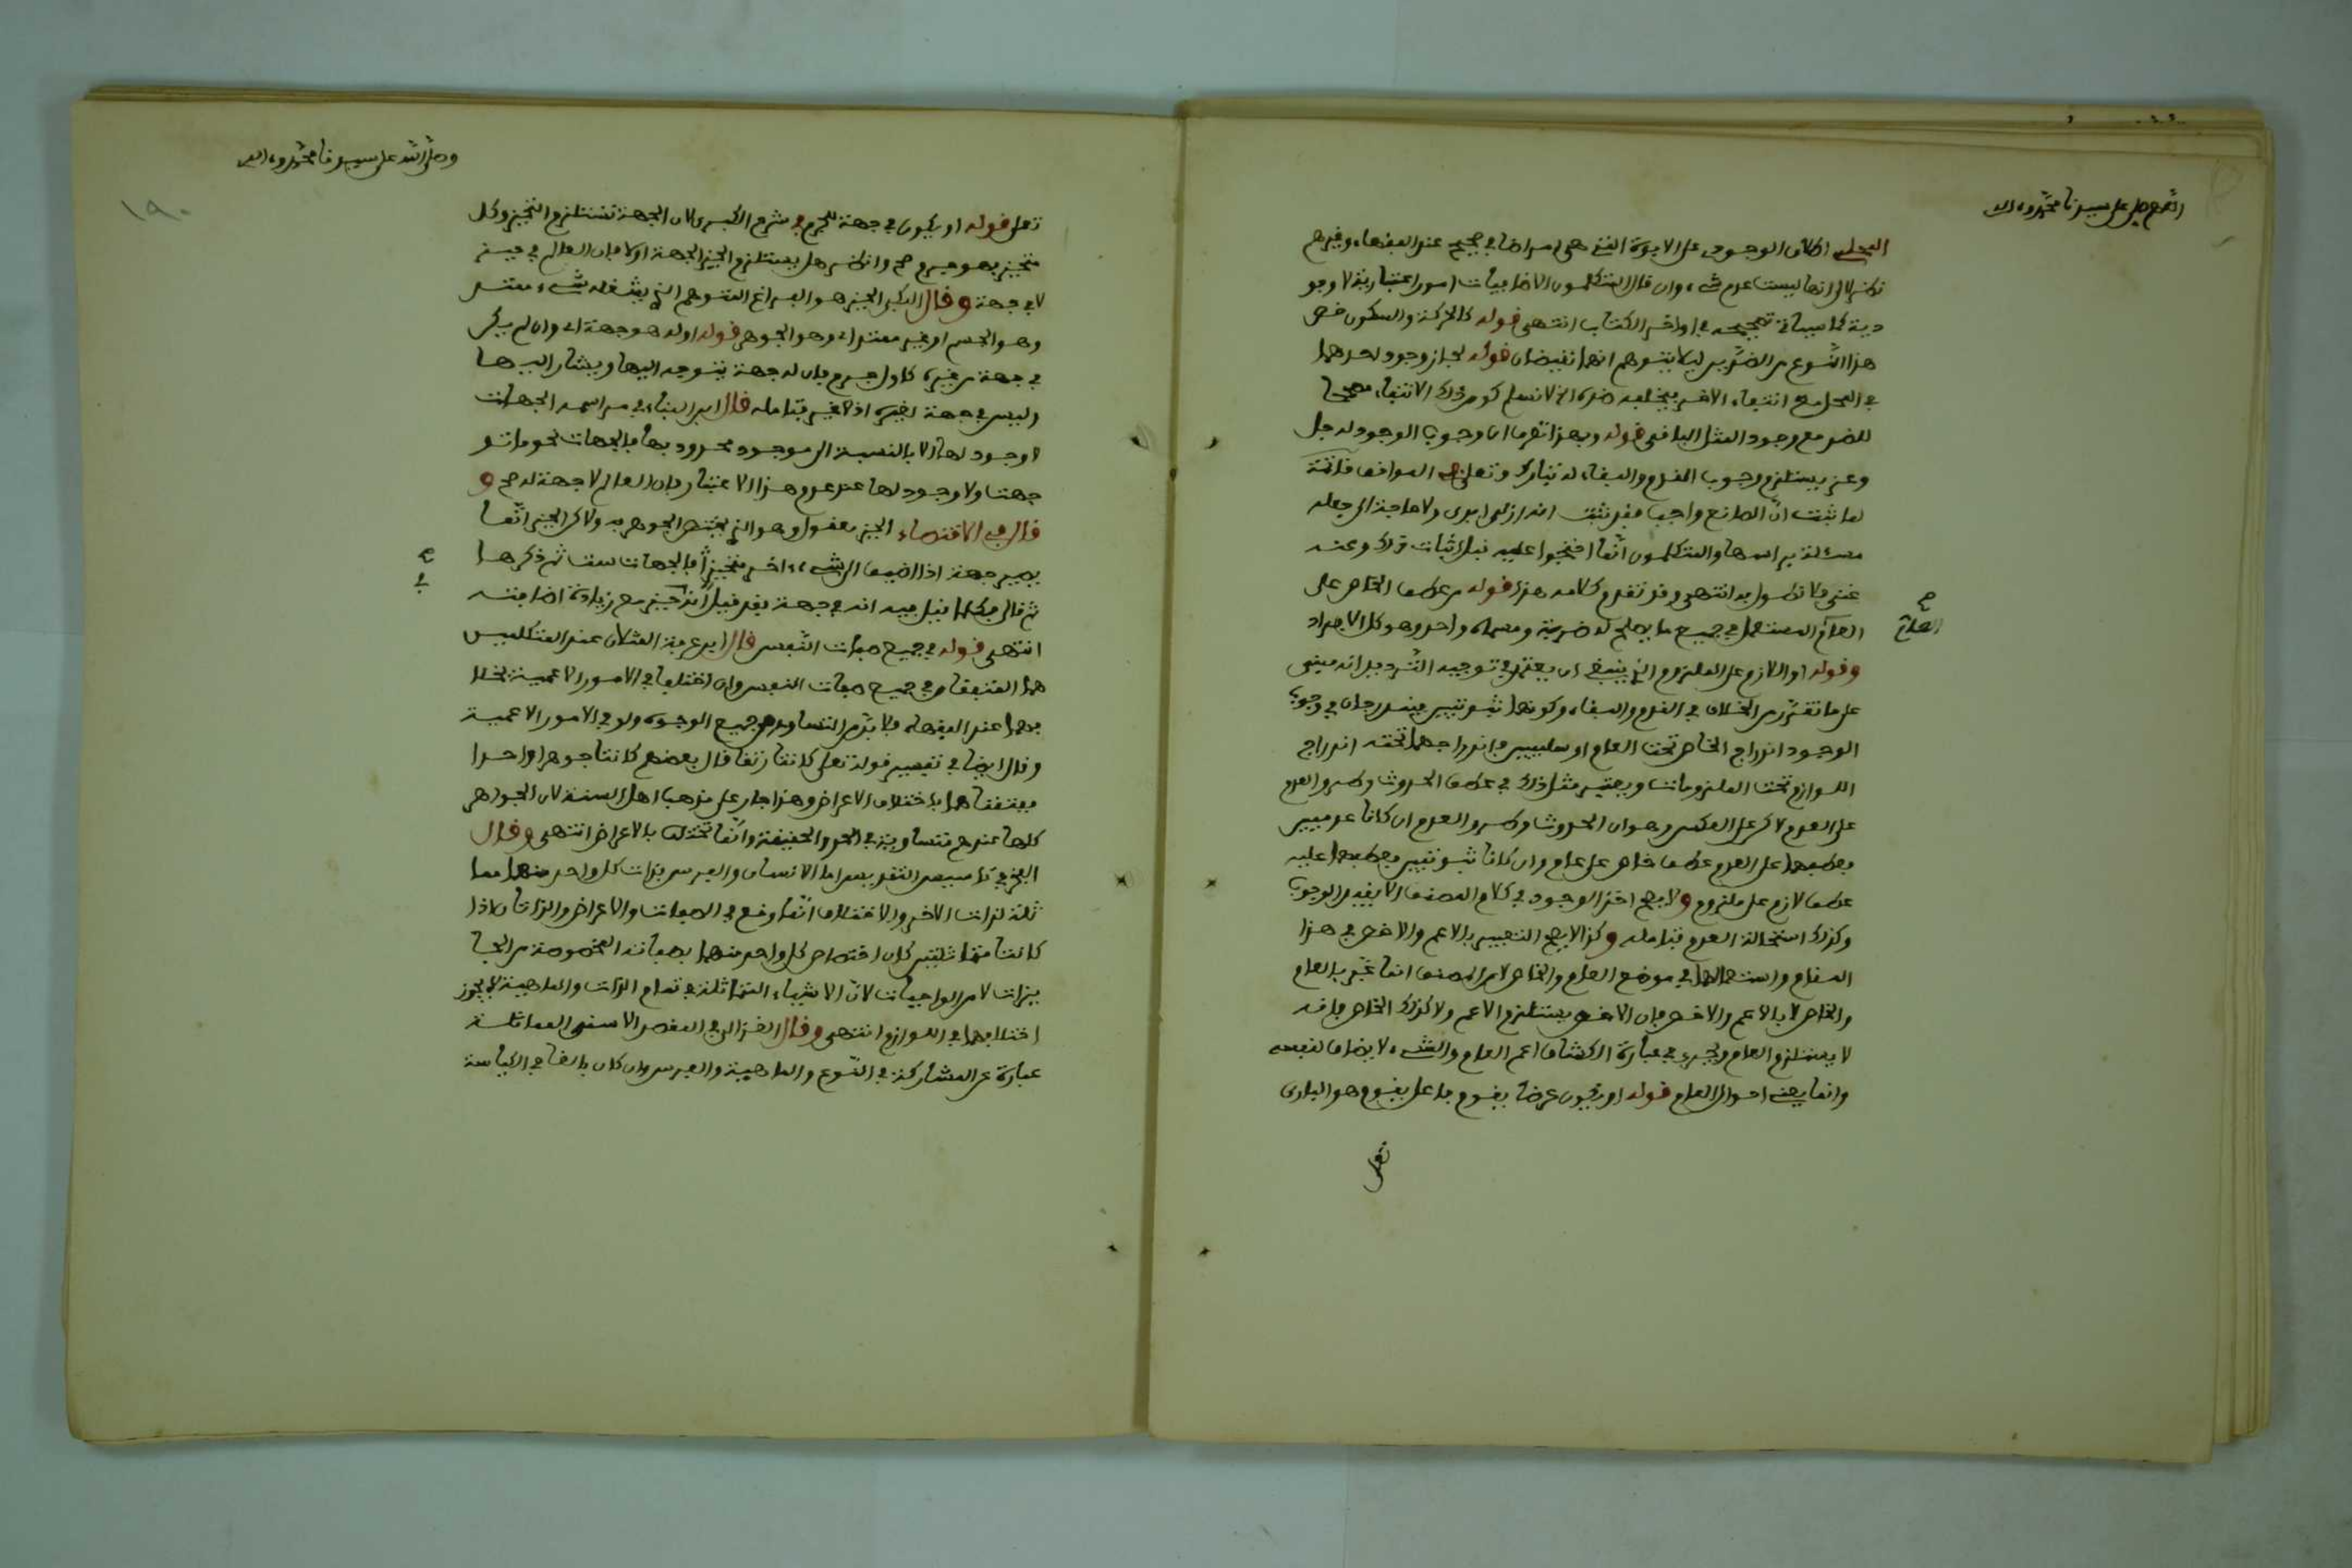 اللهم صل على سيدنا محمد وآله
المحلي اطلاق الوجودي على الابوة التي هي امر اضافي صحيح عند الفقهاء وغيرهم
نظرا لا انها ليست عدم شيء وان قال المتكلمون الاضافيات امور اعتبارية لا وجو
دية كما سياتي تصحيحه في اواخر الكتاب انتهى قوله كالحركة والسكون خص
هذا النوع من الضدين ليلا يتوهم انهما نقيضان قوله لجاز وجود احدهما
في المحل مع انتفاء الاخر فيخلفه ضده اذ لا نسلم كون ذلك الانتفاء مصححا
للضد مع وجود المثل الباقي قوله وبهذا تعرف ان وجوب الوجود له جل
وعز يستلزم وجوب القدم والبقاء له تبارك وتعلى المواقف خاتمة
لما ثبت ان الصانع واجب فقد ثبت انه ازلي ابدي ولا حاجة الى جعله
مسئلة براسها والمتكلمون انما احتجوا عليه قبل اثبات ذلك وعنه
غنى فلا نطول به انتهى وقد تقدم كلامه هذا قوله من عطف الخاص على
العام المستعمل في جميع ما يصلح له ضربة ومسماه واحد وهو كل الافراد
ح
العام
وقوله او اللازم على الملزوم الذي ينبغي ان يعتمد في توجيه الترديد انه مبني
على ما تقرر من الخلاف في القدم والبقاء وكونهما ثبوتيين فيندرجان في وجوب
الوجود اندراج الخاص تحت العام او سلبيين فاندراجهما تحته اندراج
اللوازم تحت الملزومات ويعتبر مثل ذلك في عطف الحدوث وطرو العدم
على العدم لاكن على العكس وهو ان الحدوث وطرو العدم ان كانا عدميين
فعطفهما على العدم عطف خاص على عام وان كانا ثبوتيين فعطفهما عليه
عطف لازم على ملزوم ولا يصح اخذ الوجود في كلام المصنف الا بقيد الوجوب
وكذلك استحالة العدم فتامله وكذا لا يصح التعبير بالاعم والاخص في هذا
المقام واستعمالهما في موضع العام والخاص لان المصنف انما عبر بالعام
والخاص لا بالاعم والاخص فان الاخص يستلزم الاعم ولا كذلك الخاص فانه
لا يستلزم العام ويجري في عبارة الكشاف اعم العام والشيء لا يضاف لنفسه
وانما يعني احوال العام قوله او يكون عرضا يقوم بها على يقوم هو البادي
تعلى
وصلى الله على سيدنا محمد وآله
١٩٠
تعلى قوله او يكون في جهة للجرم في شرح الكبرى لان الجهة تستلزم التحيز وكل
متحيز فهو جرم صح وانظر هل يستلزم الحيز الجهة او لا فان العالم في حيز
لا في جهة وقال البكي الحيز هو الفراغ المتوهم الذي يشغله شيء ممتد
وهو الجسم او غير ممتد اي وهو الجوهر قوله اوله هو جهة اي وان لم يكن
في جهة من غيره كاول جرم فان له جهة يتوجه اليها ويشار اليها
وليس في جهة لغيره اذ لا غير فتامله قال ابن البناء في مراسمه الجهات
لا وجود لها الا بالنسبة الى موجود محدود بها فالجهات نحو ما تو
جهت ولا وجود لها عند عدم هذا الاعتبار فان العالم لا جهة له صح و
قال في الاقتصاد الحيز معقول وهو الذي يختص الجوهر به ولاكن الحيز انما
يصير جهة اذا اضيف الى شيء اخر متحيز فالجهات ست ثم ذكرها
ح
ثم قال فكلما قيل فيه انه في جهة فقد قيل انه في حيز مع زيادة اضافته
انتهى قوله في جميع صفات النفس قال ابن عرفة المثلان عند المتكلمين
هما المتفقان في جميع صفات النفس وان اختلفا في الامور الاعمية بخلا
فهما عند الفقهاء فلا بد من التساوي من جميع الوجوه ولو في الامور الاعمية
وقال ايضا في تفسير قوله تعلى كانتا رتقا قال بعضهم كانتا جوهرا واحدا
ففتقناهما باختلاف الاعراض وهذا جار على مذهب اهل السنة لان الجواهر
كلها عندهم متساوية في الحد والحقيقة وانما تختلف بالاعراض انتهى وقال
الفخر في تاسيس التقديس اما الانسان والفرس فذات كل واحد منهما مما
ثلة لذات الاخر والاختلاف انما وقع في الصفات والاعراض والذاتان اذا
كانتا متماثلتين كان اختصاص كل واحد منهما بصفاته المخصوصة من الجا
يزات لا من الواجبات لان الاشياء المتماثلة في تمام الذات والماهية لا يجوز
اختلافهما في اللوازم انتهى وقال الغزالي في المقصد الاسنى المماثلة
عبارة عن المشاركة في النوع والماهية والفرس وان كان بالغا في الكياسة